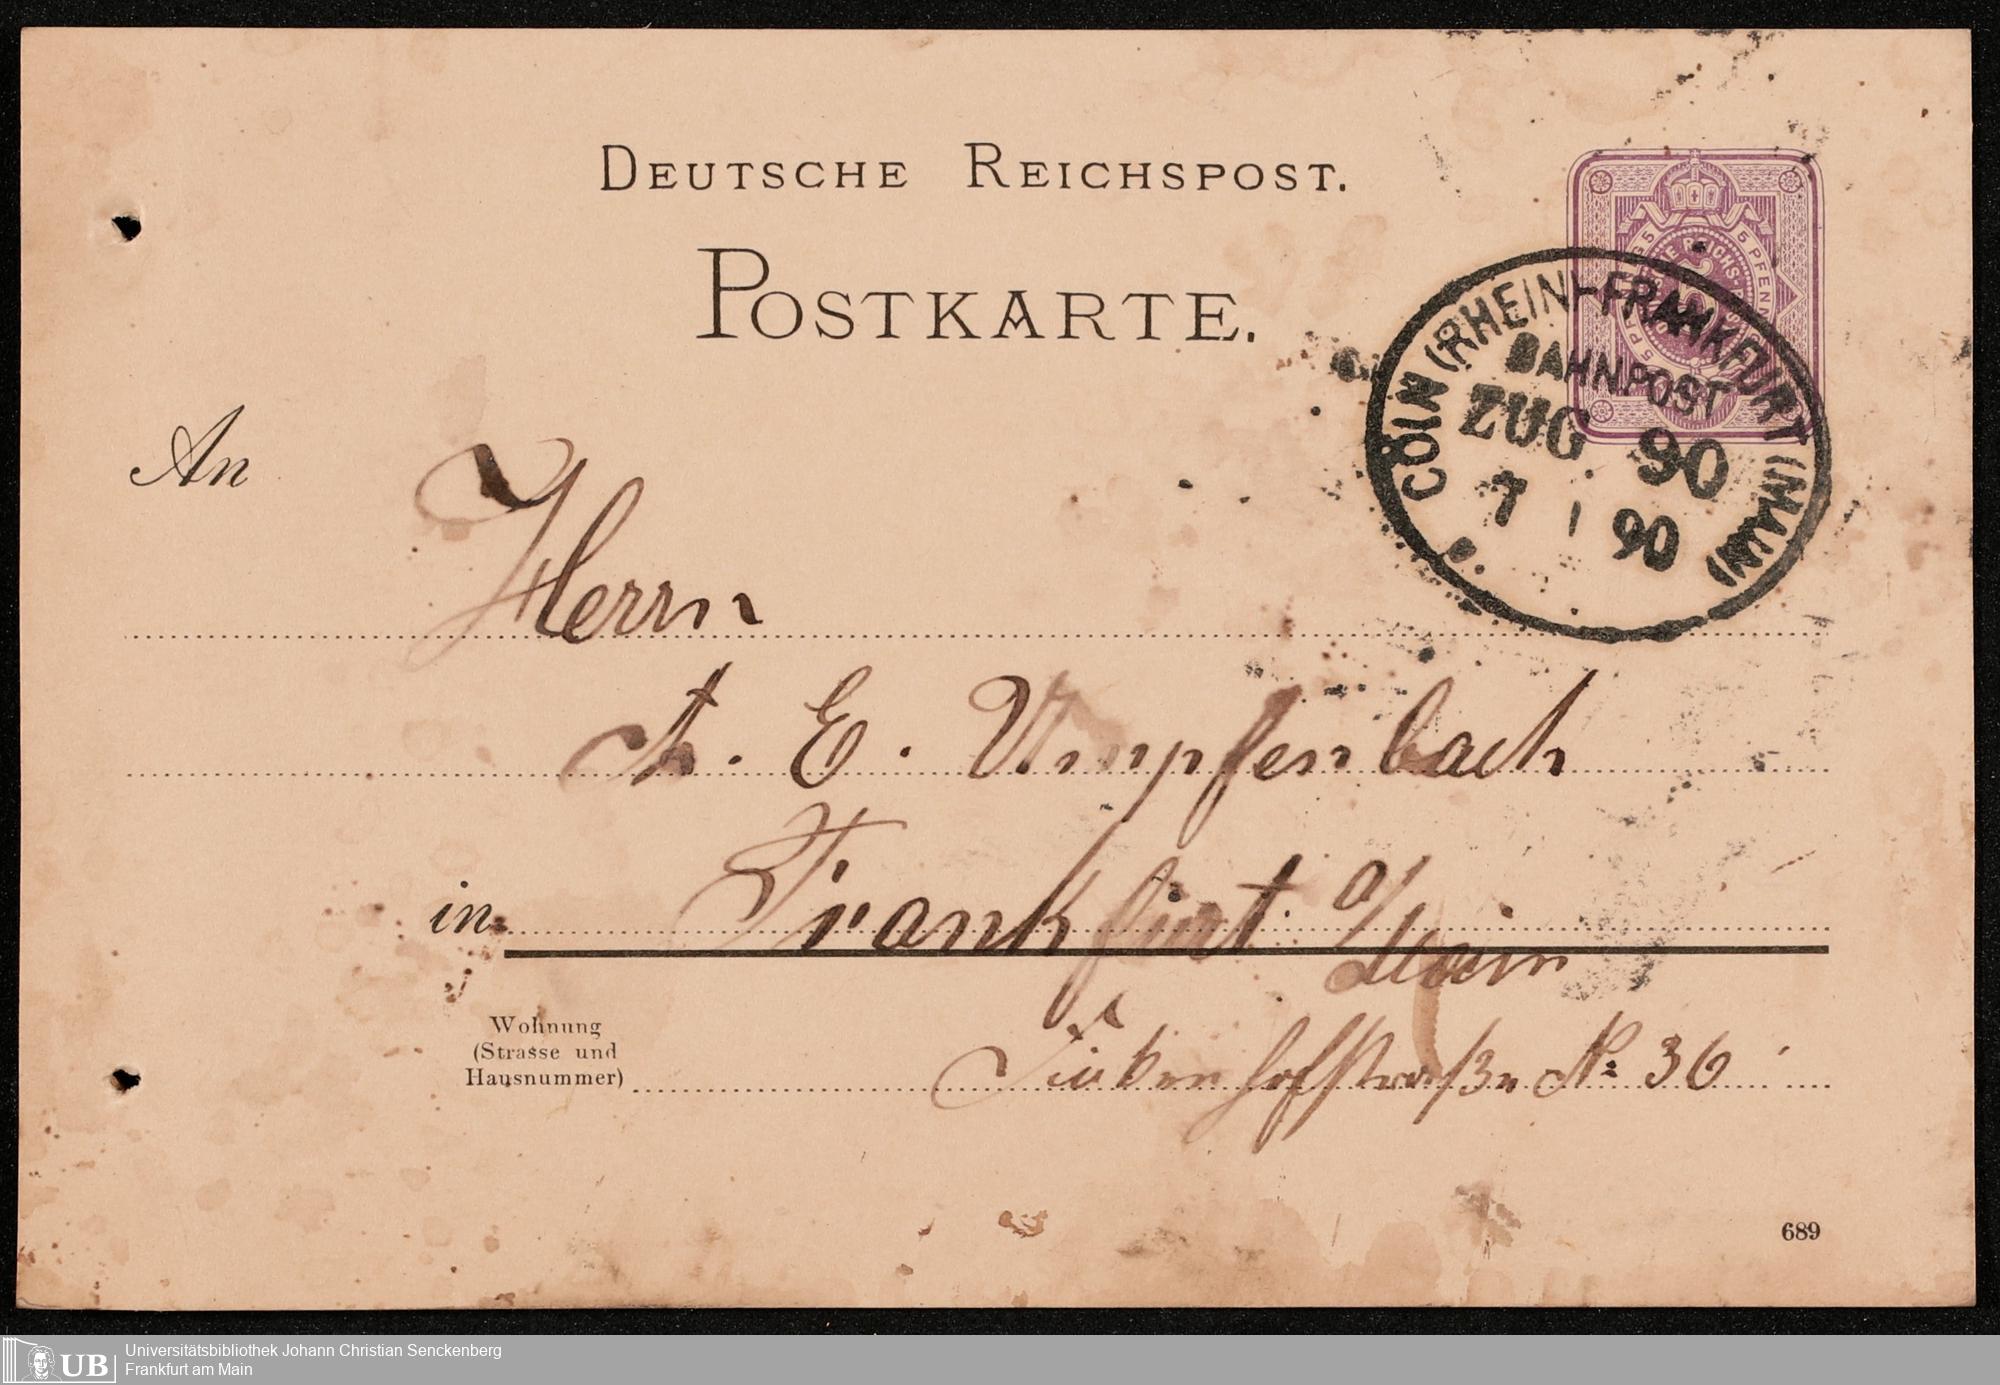 DEUTSCHE REICHSPOST.
POSTKARTE.
5 PFENNIG
CÖLN (RHEIN)-FRANKFURT (MAIN)
BAHNPOST
ZUG 90
7 1 90
An
Herrn
A. E. Umpfenbach
in Frankfurt a/Main
Wohnung
(Strasse und
Hausnummer)
№ 36
689
UB
Universitätsbibliothek Johann Christian Senckenberg
Frankfurt am Main